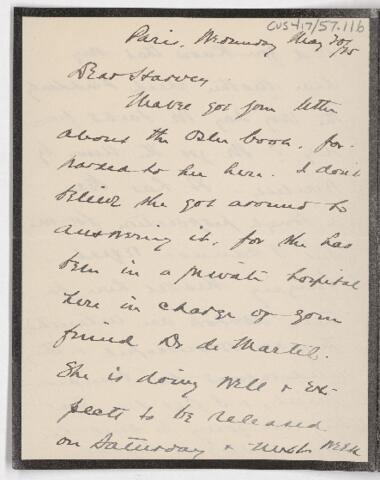 CUS417/57.116
Paris, Wednesday May 20/25
Dear Harvey
Mabel got your letter
about the Osler book, for-
warded to her here. I don't
believe she got around to
answering it, for she has
been in a private hospital
here in charge of your
friend Dr de Martel.
She is doing well & ex-
pects to be released
on Saturday & next week